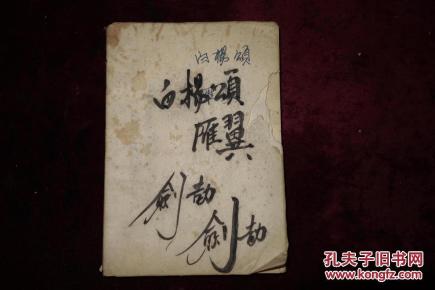 白楊頌
白楊頌
雁翼
劍劼
劍劼
孔夫子旧书网
www.kongfz.com